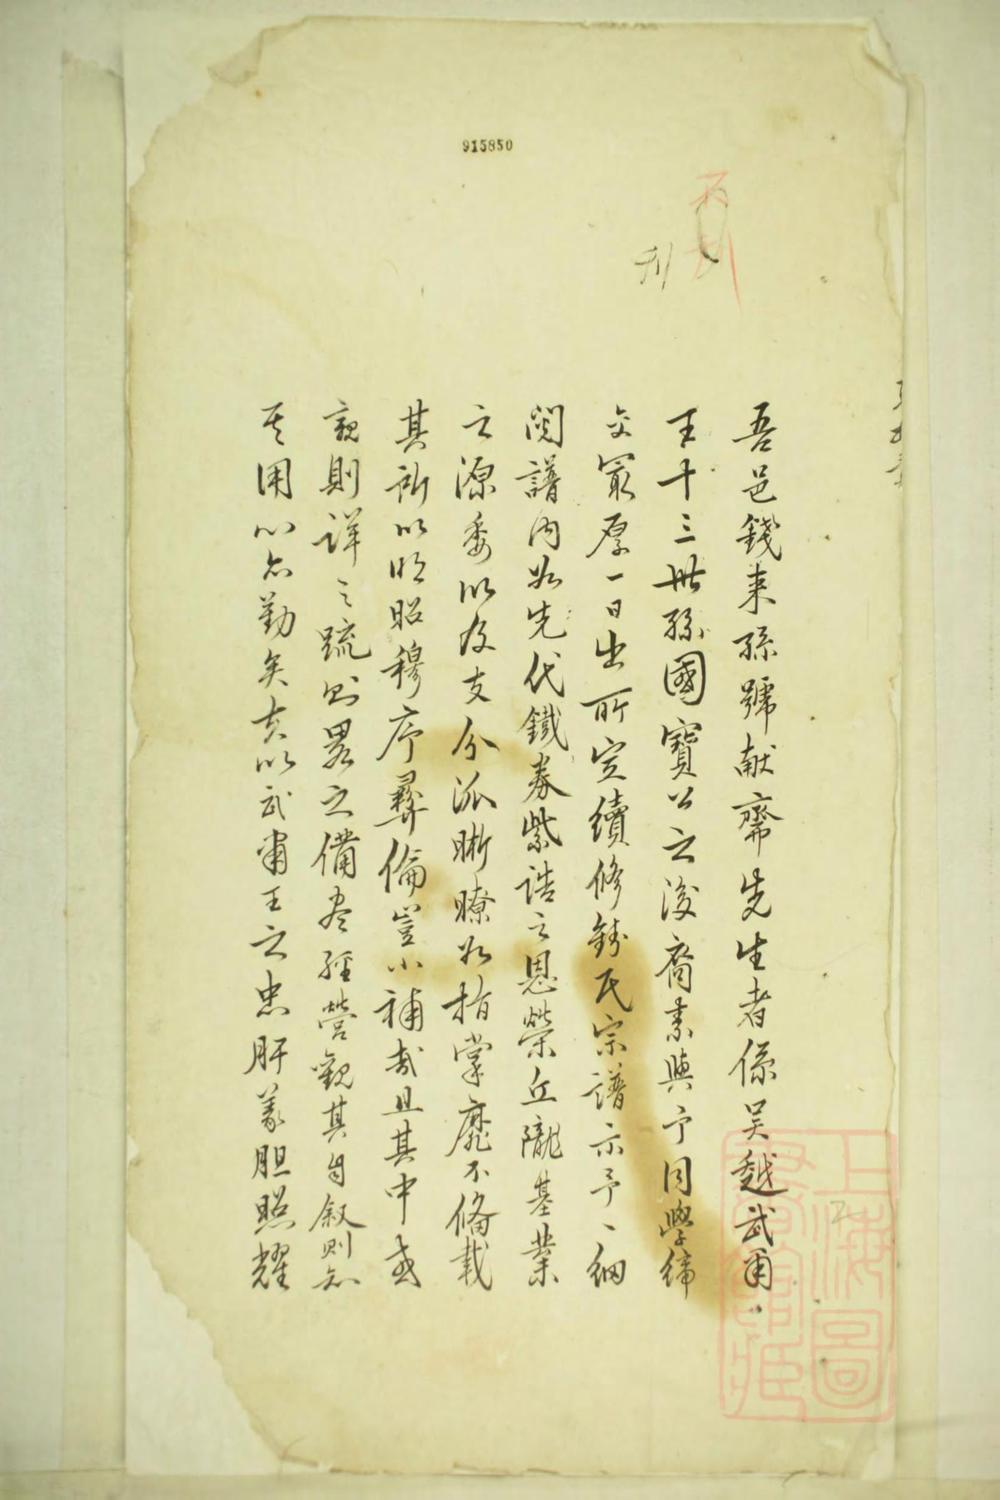 915850
不刊
刊
吾邑錢来孫號献齋先生者係吴越武肅
王十三世孫國寶公之後裔素與予同學締
交最厚一日出所定續修錢氏宗譜示予予細
閱譜內如先代鐵券紫誥之恩榮丘隴基業
之源委以及支分派晰瞭如指掌靡不備載
其所以明昭穆序彝倫豈小補哉且其中或
親則詳之疏則畧之備尽經營觀其自叙則知
其用心亦勤矣夫以武肅王之忠肝義胆照耀
上海圖書館藏